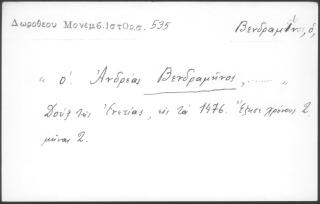 Δωροθέου Μονεμβ. Ιστορ. 535
Βενδραμῖνος, ὁ,
" ὁ. Ἀνδρέας Βενδραμῆνος, ........ "
Δούξ τῆς Ἑνετίας, εἰς τὰ 1476. Ἔζησε χρόνους 2.
μῆνας 2.